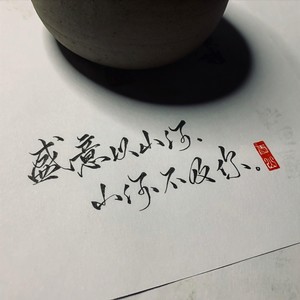 盛意以山河、
山河不及你。